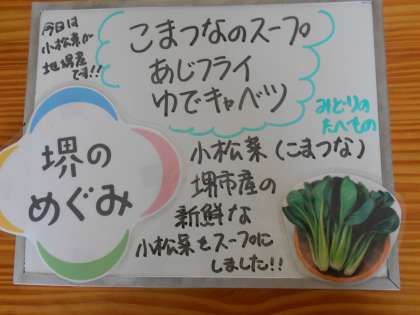 今日は
小松菜が
地場産
です!!
こまつなのスープ
あじフライ
ゆでキャベツ
みどりの
たべもの
堺の
めぐみ
小松菜(こまつな)
堺市産の
新鮮な
小松菜をスープに
しました!!